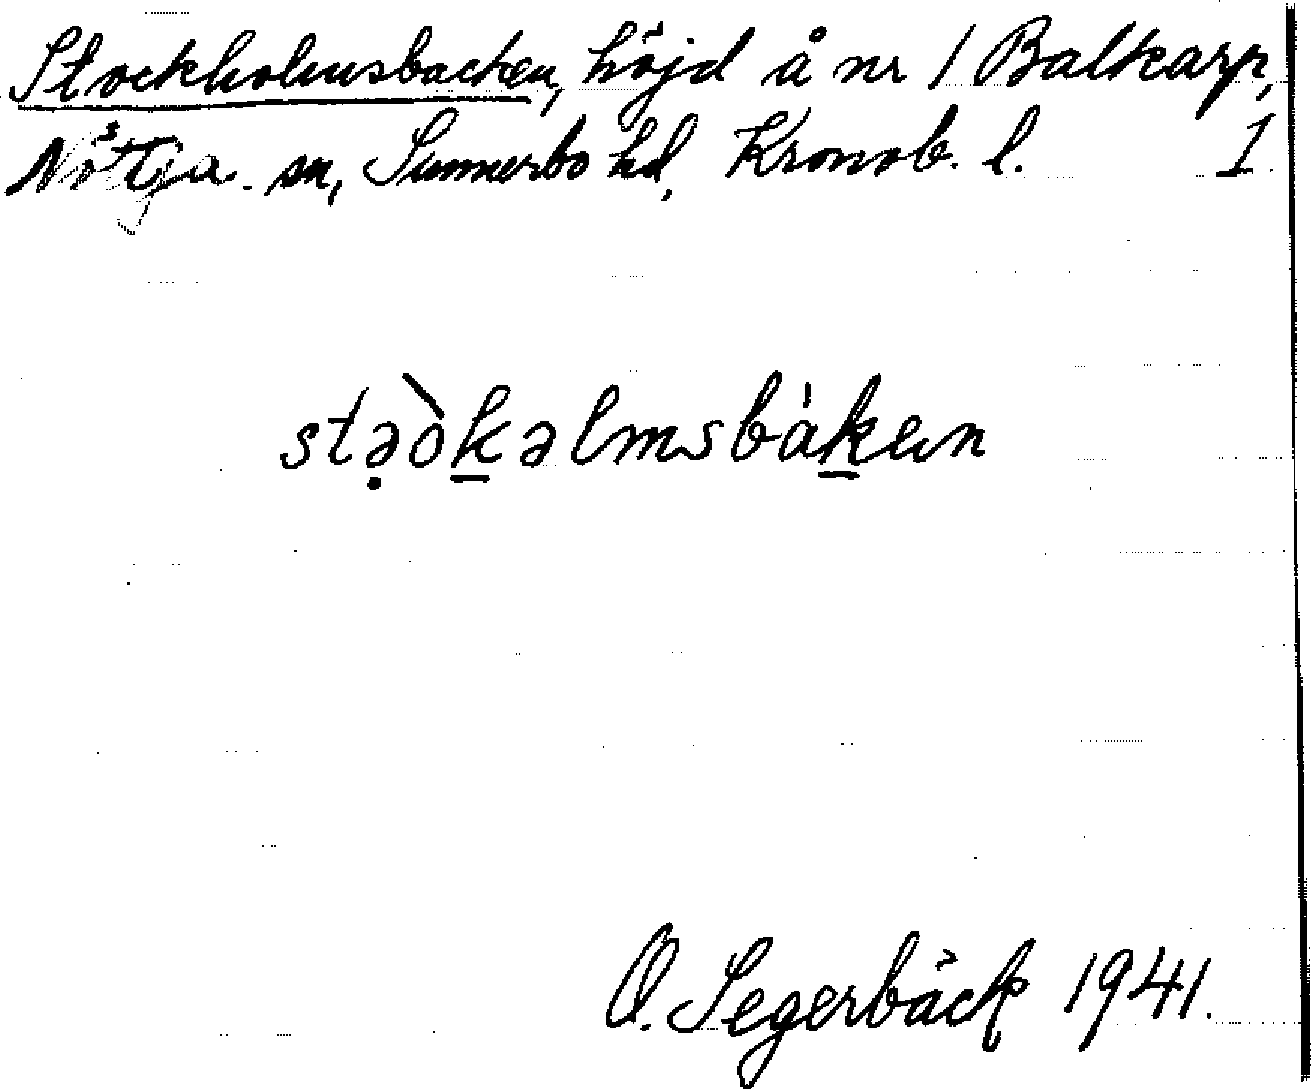 Stockholmsbacken, höjd å nr 1 Balkarp,
Nöttja sn, Sunnerbo hd, Kronob. l. 1
stə̣òk̲əlmsbák̲en
O. Segerbäck 1941.